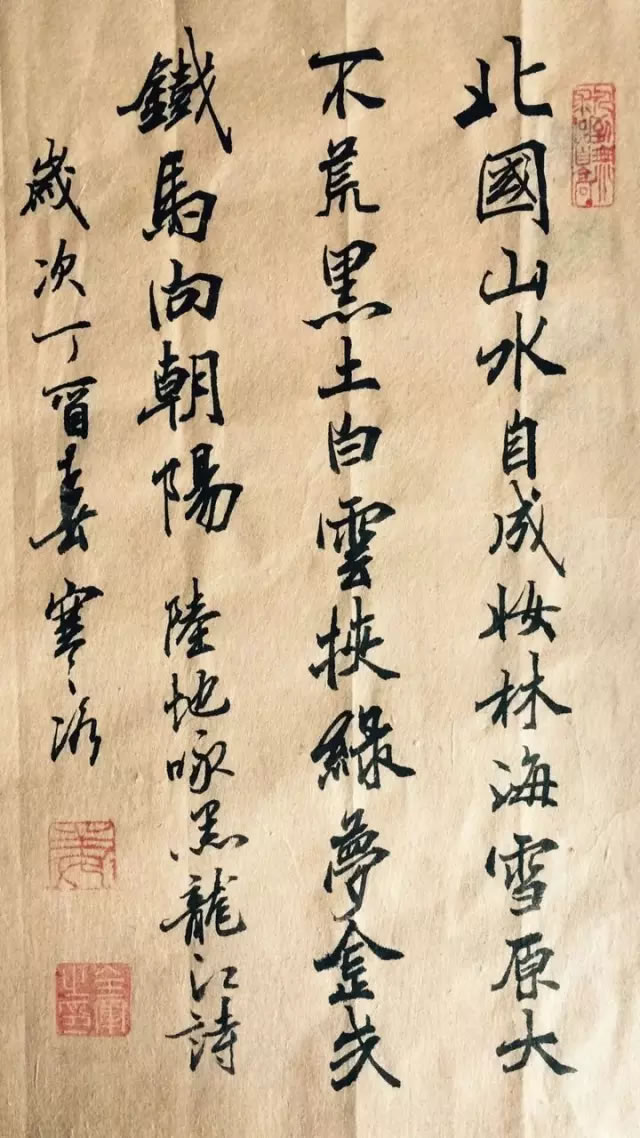 北國山水自成妝林海雪原大
不荒黑土白雲挾綠夢金戈
鐵馬向朝陽 陸地咏黑龍江詩
歲次丁酉春 寒冰